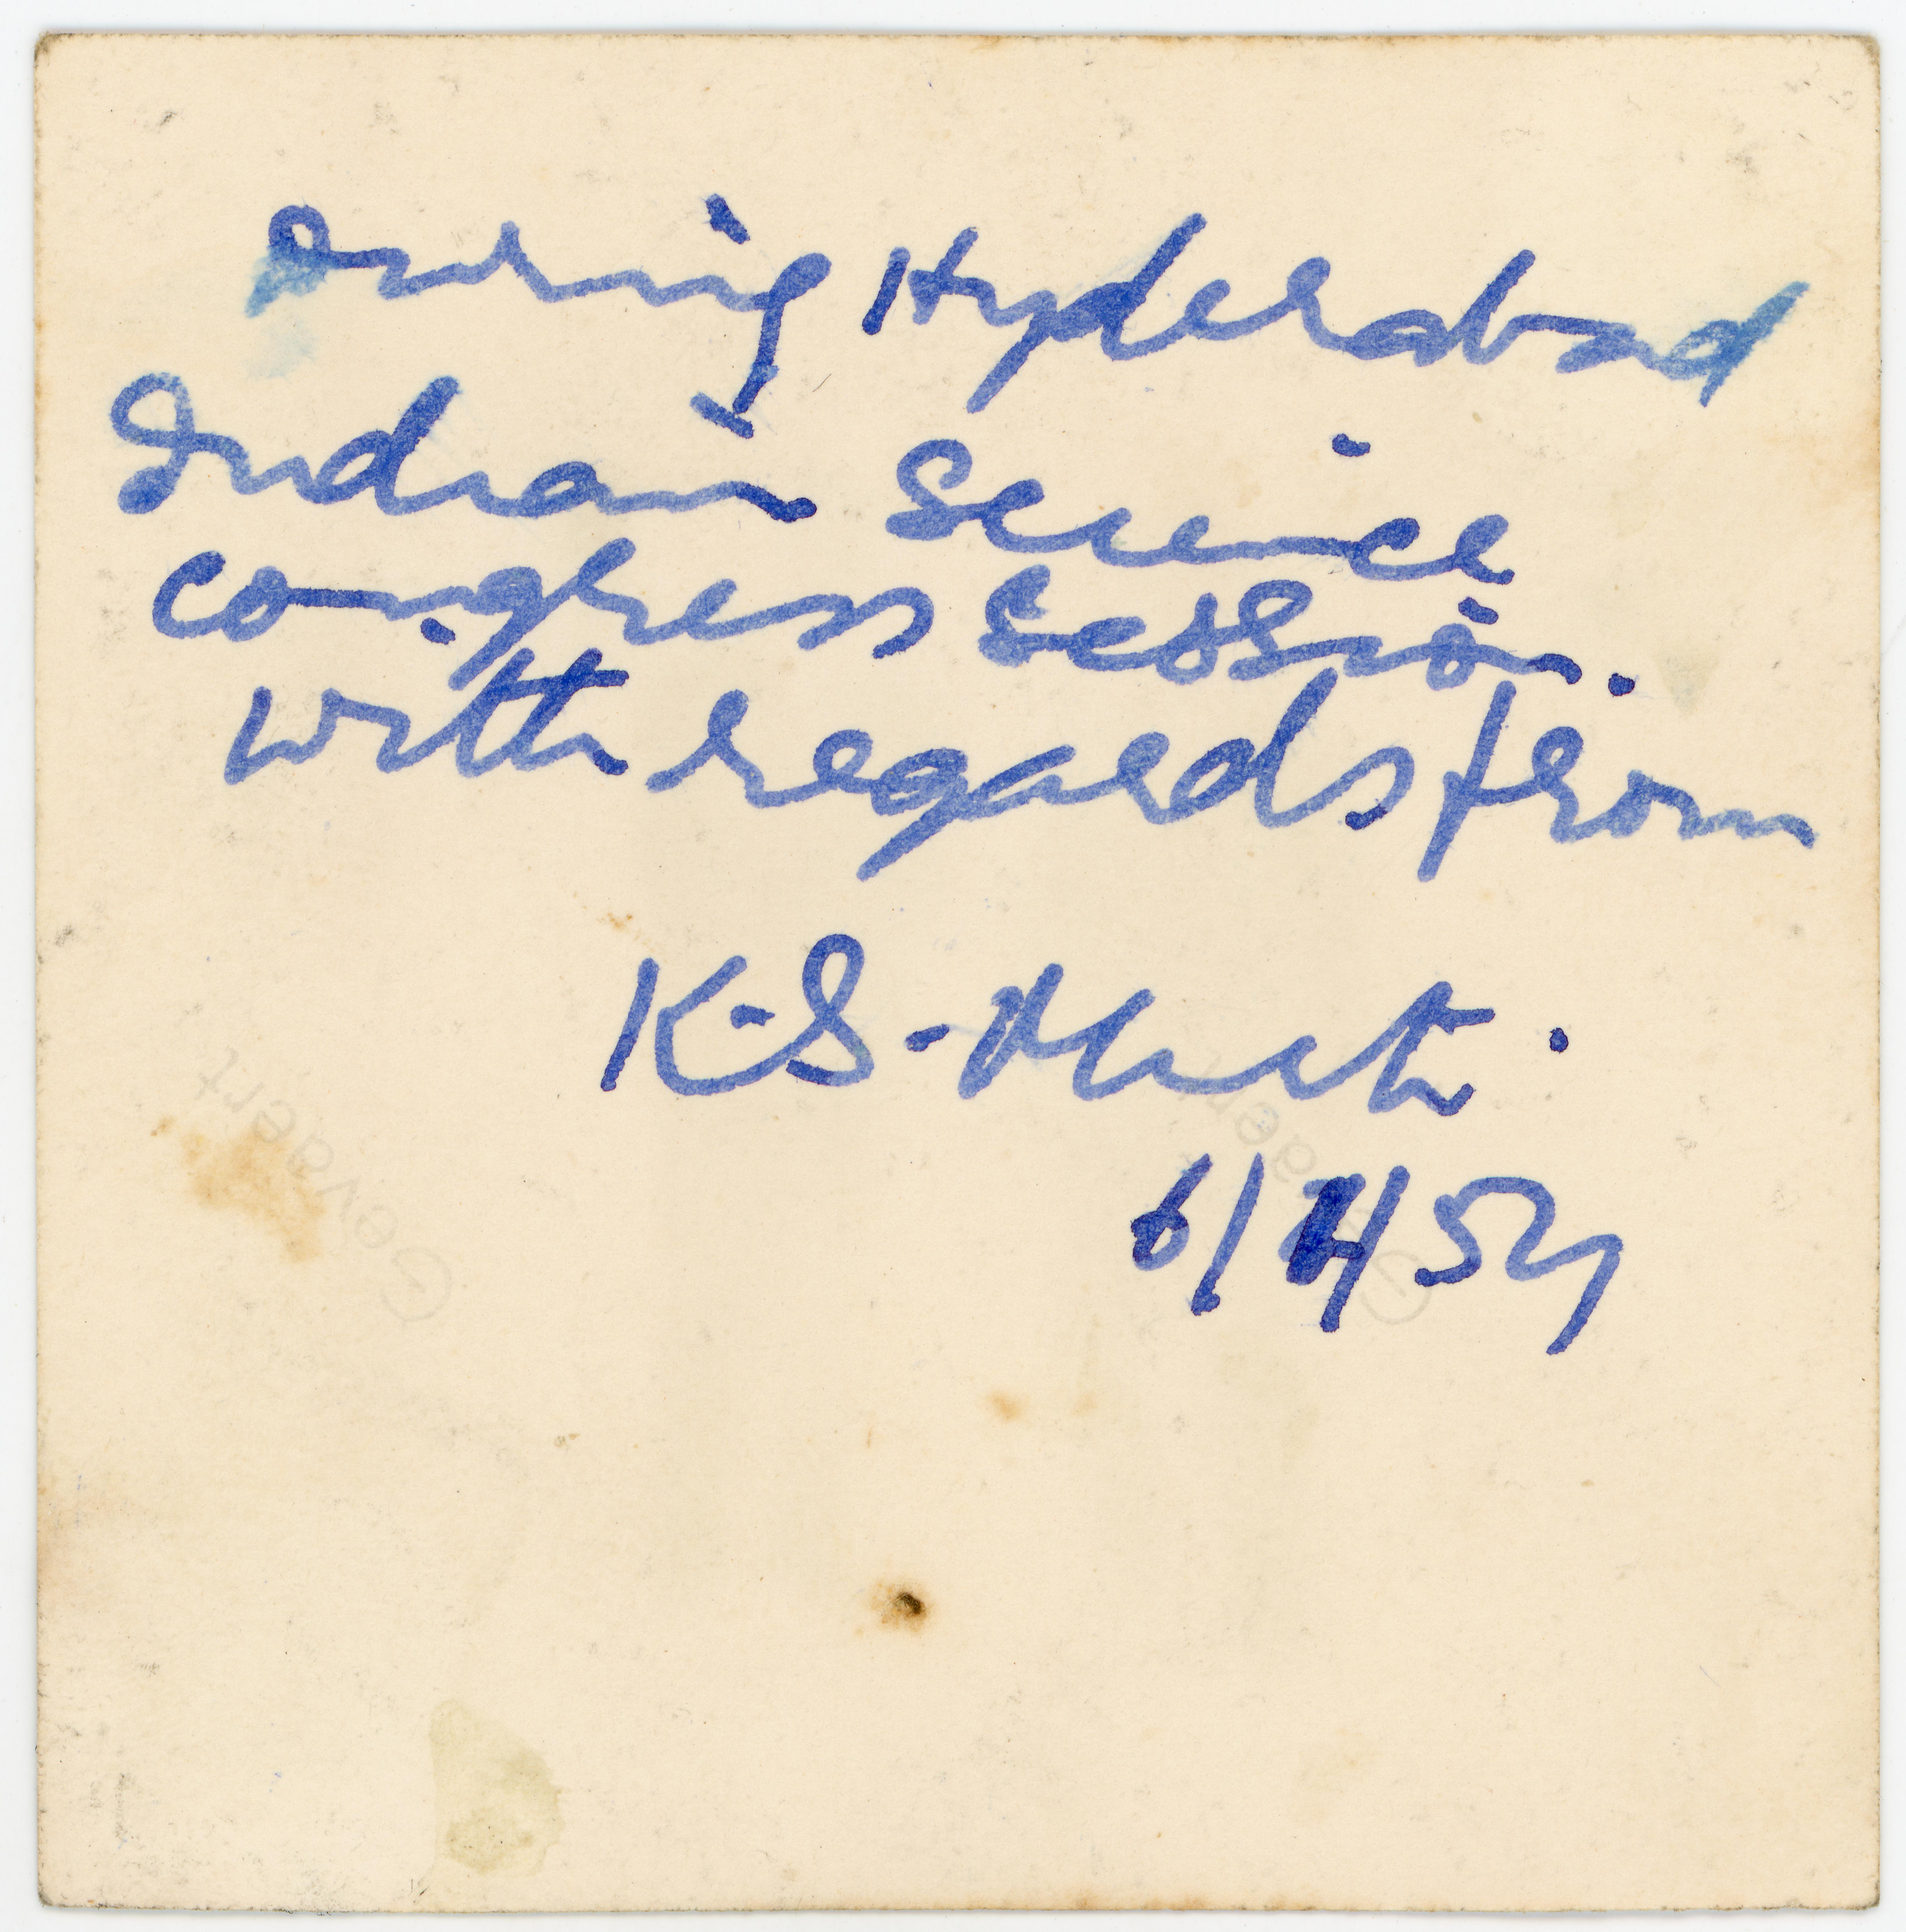 During Hyderabad
Indian Science
Congress Session.
with regards from
K.S.
6/4/54
Gevaert
Gevaert